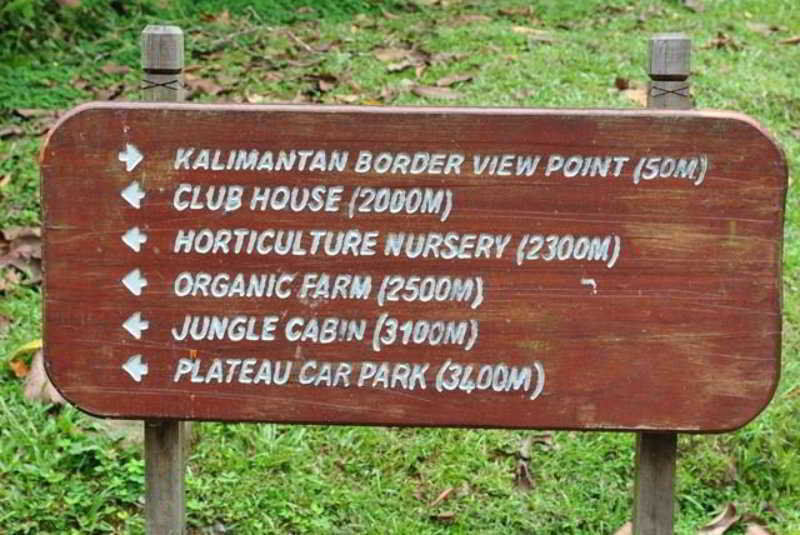 KALIMANTAN BORDER VIEW POINT (50M)
CLUB HOUSE (2000M)
HORTICULTURE NURSERY (2300M)
ORGANIC FARM (2500M)
JUNGLE CABIN (3100M)
PLATEAU CAR PARK (3400M)